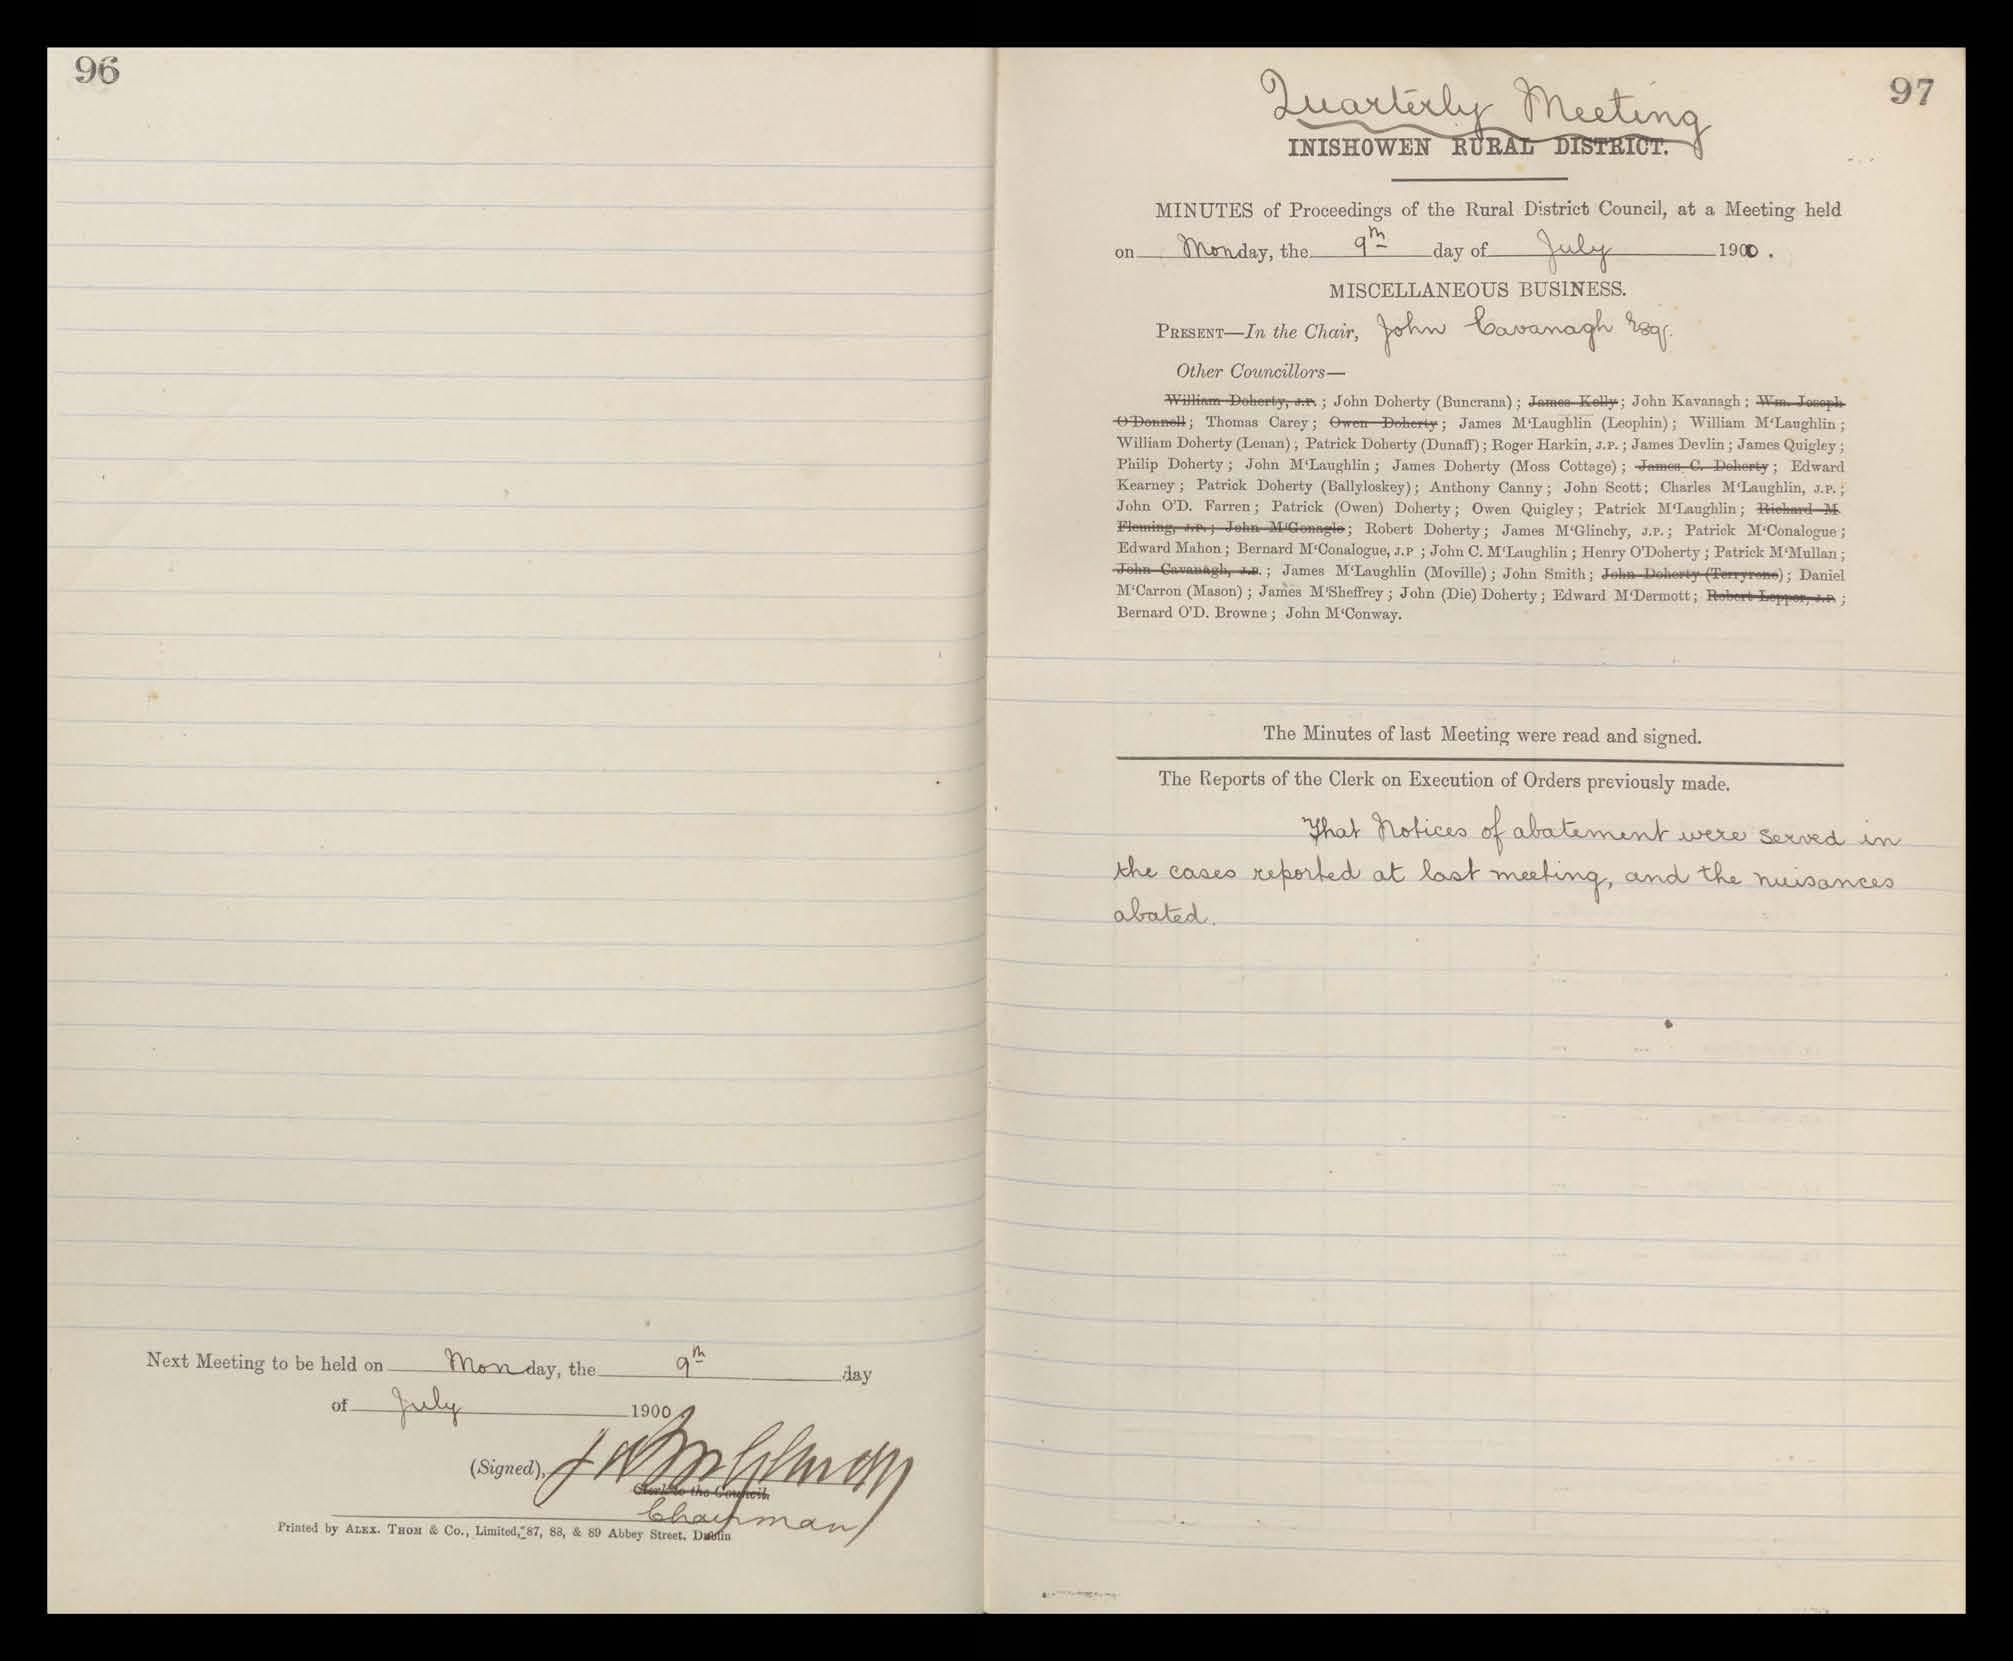 96
Next Meeting to be held on Monday, the 9th day
of July 1900
(Signed),
Clerk to the Council.
Chairman
Printed by ALEX. THOM & Co., Limited, 87, 88, & 89 Abbey Street, Dublin
97
Quarterly Meeting
INISHOWEN RURAL DISTRICT.
MINUTES of Proceedings of the Rural District Council, at a Meeting held
on Monday, the 9th day of July 1900.
MISCELLANEOUS BUSINESS.
PRESENT—In the Chair, John Cavanagh Esqr.
Other Councillors—
William Doherty, J.P.; John Doherty (Buncrana); James Kelly; John Kavanagh; Wm. Joseph
O'Donnell; Thomas Carey; Owen Doherty; James M'Laughlin (Leophin); William M'Laughlin;
William Doherty (Lenan); Patrick Doherty (Dunaff); Roger Harkin, J.P.; James Devlin; James Quigley;
Philip Doherty; John M'Laughlin; James Doherty (Moss Cottage); James C. Doherty; Edward
Kearney; Patrick Doherty (Ballyloskey); Anthony Canny; John Scott; Charles M'Laughlin, J.P.;
John O'D. Farren; Patrick (Owen) Doherty; Owen Quigley; Patrick M'Laughlin; Richard M.
Fleming, J.P.; John M'Gonagle; Robert Doherty; James M'Glinchy, J.P.; Patrick M'Conalogue;
Edward Mahon; Bernard M'Conalogue, J.P.; John C. M'Laughlin; Henry O'Doherty; Patrick M'Mullan;
John Cavanagh, J.P.; James M'Laughlin (Moville); John Smith; John Doherty (Terryrone); Daniel
M'Carron (Mason); James M'Sheffrey; John (Die) Doherty; Edward M'Dermott; Robert Lepper, J.P.;
Bernard O'D. Browne; John M'Conway.
The Minutes of last Meeting were read and signed.
The Reports of the Clerk on Execution of Orders previously made.
That Notices of abatement were served in
the cases reported at last meeting, and the nuisances
abated.